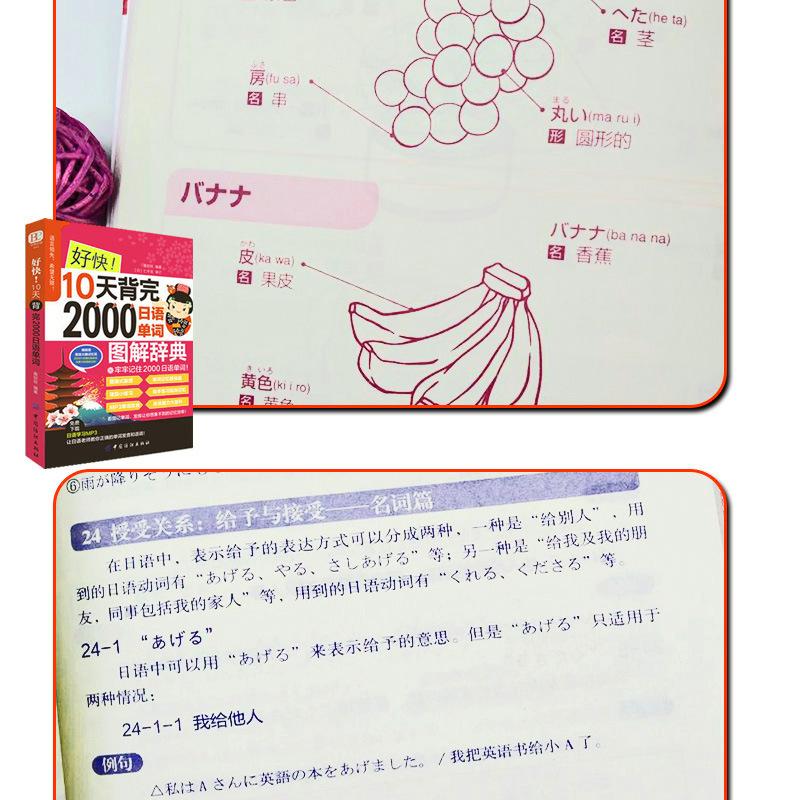 へた(he ta)
名 茎
ふさ
房(fu sa)
名 串
まる
丸い(ma ru i)
形 圆形的
バナナ
バナナ(ba na na)
名 香蕉
かわ
皮(ka wa)
名 果皮
きいろ
黄色(ki i ro)
好快!
10天背完
2000日语单词
图解辞典
牢牢记住2000日语单词!
免费下载
日语学习MP3
中国纺织出版社
好快!10天背完2000日语单词
⑥雨が降りそうに
24 授受关系：给予与接受——名词篇
在日语中，表示给予的表达方式可以分成两种，一种是“给别人”，用
到的日语动词有“あげる、やる、さしあげる”等；另一种是“给我及我的朋
友，同事包括我的家人”等，用到的日语动词有“くれる、くださる”等。
24-1 “あげる”
日语中可以用“あげる”来表示给予的意思。但是“あげる”只适用于
两种情况：
24-1-1 我给他人
例句
△私はAさんに英語の本をあげました。/我把英语书给小A了。